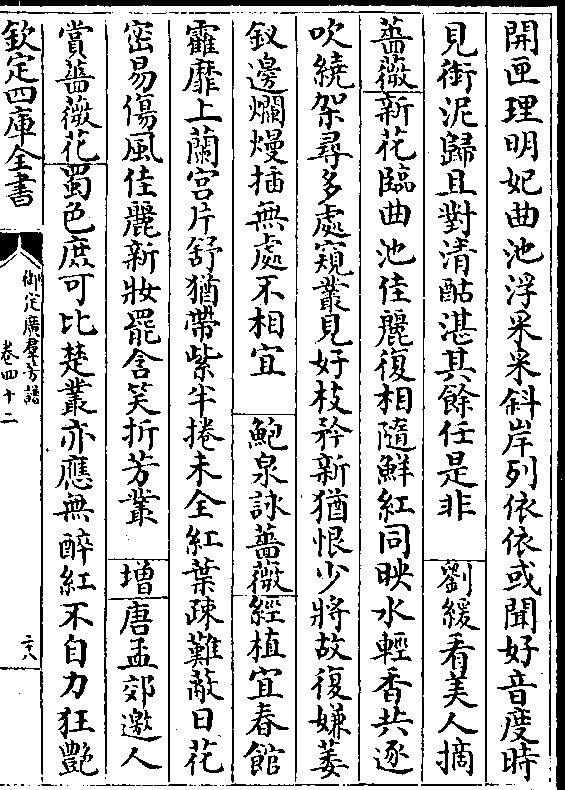 開匣理明妃曲池浮采采斜岸列依依或聞好音度時
見銜泥歸且對清酤湛其餘任是非　劉緩看美人摘
薔薇新花臨曲池佳麗復相隨鮮紅同映水輕香共逐
吹繞架尋多處窺叢見好枝矜新猶恨少將故復嫌萎
釵邊爛熳插無處不相宜　鮑泉詠薔薇經植宜春館
靃靡上蘭宮片舒猶帶紫半捲未全紅葉疎難蔽日花
密易傷風佳麗新妝罷含笑折芳叢　增唐孟郊邀人
賞薔薇花蜀色庶可比楚叢亦應無醉紅不自力狂艷
欽定四庫全書
御定廣羣芳譜
卷四十二
二八